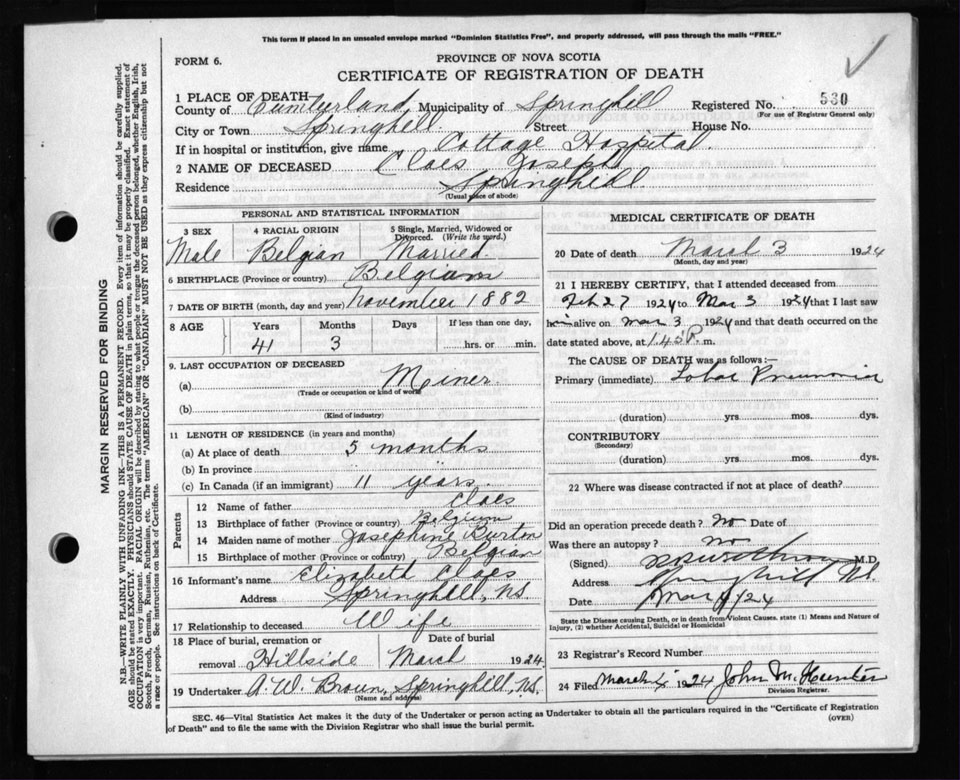 This form if placed in an unsealed envelope marked "Dominion Statistics Free", and properly addressed, will pass through the mails "FREE."
FORM 6.
PROVINCE OF NOVA SCOTIA
CERTIFICATE OF REGISTRATION OF DEATH
1 PLACE OF DEATH
County of Cumberland Municipality of Springhill Registered No. 530
(For use of Registrar General only)
City or Town Springhill. Street House No.
If in hospital or institution, give name Cottage Hospital.
2 NAME OF DECEASED Claes Joseph
Residence Springhill.
(Usual place of abode)
PERSONAL AND STATISTICAL INFORMATION
3 SEX 4 RACIAL ORIGIN 5 Single, Married, Widowed or Divorced. (Write the word.)
Male Belgian Married.
6 BIRTHPLACE (Province or country) Belgium
7 DATE OF BIRTH (month, day and year) November 1882
8 AGE Years Months Days If less than one day,
41 3 hrs. or min.
9. LAST OCCUPATION OF DECEASED
(a) Miner.
(Trade or occupation or kind of work)
(b)
(Kind of industry)
11 LENGTH OF RESIDENCE (in years and months)
(a) At place of death 5 months
(b) In province
(c) In Canada (if an immigrant) 11 years.
Parents
12 Name of father Claes
13 Birthplace of father (Province or country) Belgium
14 Maiden name of mother Josephine Burton
15 Birthplace of mother (Province or country) Belgian
16 Informant's name Elizabeth Claes
Address Springhill, NS.
17 Relationship to deceased Wife
18 Place of burial, cremation or removal Hillside
Date of burial March 1924
19 Undertaker A. W. Brown, Springhill, NS.
(Name and address)
MEDICAL CERTIFICATE OF DEATH
20 Date of death March 3 1924
(Month, day and year)
21 I HEREBY CERTIFY, that I attended deceased from
Feb 27 1924 to Mar 3 1924 that I last saw
him alive on Mar 3 1924 and that death occurred on the
date stated above, at 1.45 P. m.
The CAUSE OF DEATH was as follows:—
Primary (immediate) Lobar Pneumonia
(duration) yrs. mos. dys.
CONTRIBUTORY
(Secondary)
(duration) yrs. mos. dys.
22 Where was disease contracted if not at place of death?
Did an operation precede death? No Date of
Was there an autopsy? No
(Signed) M.D.
Address Springhill NS.
Date Mar 4/24
State the Disease causing Death, or in death from Violent Causes. state (1) Means and Nature of Injury, (2) whether Accidental, Suicidal or Homicidal
23 Registrar's Record Number
24 Filed March 4 1924 John M. Hunter
Division Registrar.
SEC. 46—Vital Statistics Act makes it the duty of the Undertaker or person acting as Undertaker to obtain all the particulars required in the "Certificate of Registration of Death" and to file the same with the Division Registrar who shall issue the burial permit.
(OVER)
MARGIN RESERVED FOR BINDING
N.B.—WRITE PLAINLY WITH UNFADING INK—THIS IS A PERMANENT RECORD. Every item of information should be carefully supplied.
AGE should be stated EXACTLY. PHYSICIANS should STATE CAUSE OF DEATH in plain terms, so that it may be properly classified. Exact statement of
OCCUPATION is very important. RACIAL ORIGIN will be described by stating to what people or tongue the deceased person belonged, whether English, Irish,
Scotch, French, German, Russian, Ruthenian, etc. The terms "AMERICAN" OR "CANADIAN" MUST NOT BE USED as they express citizenship but not
a race or people. See instructions on back of Certificate.